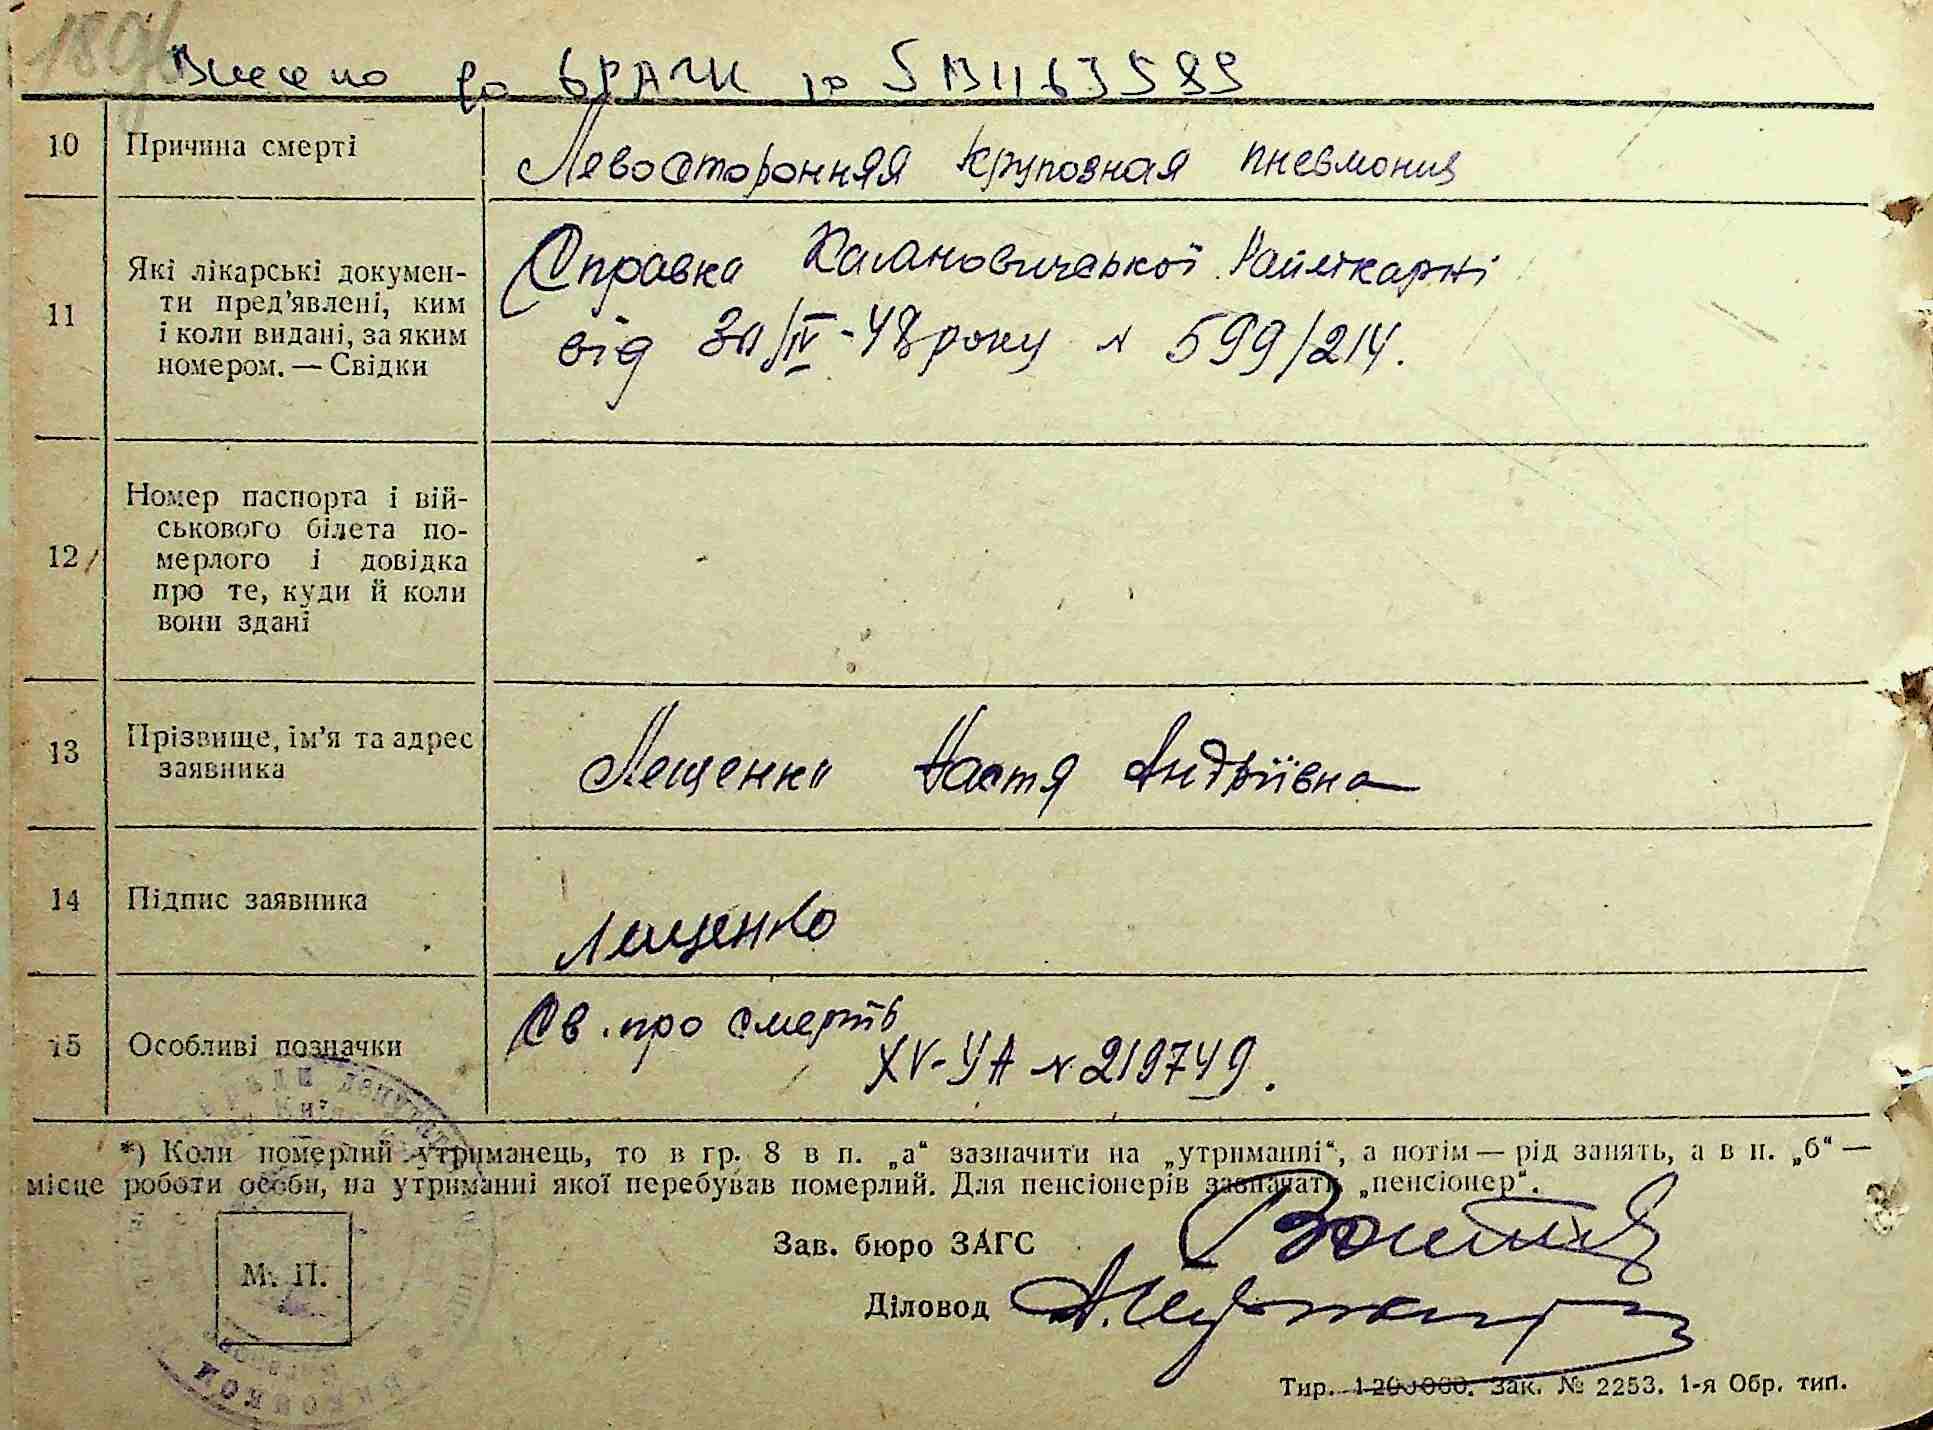 180
Внесено до ДРАЦС
10 Причина смерті Левосторонняя крупозная пневмония
11 Які лікарські документи пред'явлені, ким і коли видані, за яким номером. — Свідки
Справка Кагановичської Райлікарні
від 30/IV-48 року № 599/214.
12 Номер паспорта і вій-
ськового білета по-
мерлого і довідка
про те, куди й коли
вони здані
13 Прізвище, ім'я та адрес
заявника
Лещенко Настя Андріївна
14 Підпис заявника Лещенко
15 Особливі позначки Св. про смерть
XV-УА № 219749.
*) Коли померлий утриманець, то в гр. 8 в п. „а“ зазначити на „утриманні“, а потім — рід занять, а в п. „б“ —
місце роботи особи, на утриманні якої перебував померлий. Для пенсіонерів зазначать „пенсіонер“.
М. П.
Зав. бюро ЗАГС
Діловод
Тир. 1 200 000. Зак. № 2253. 1-я Обр. тип.